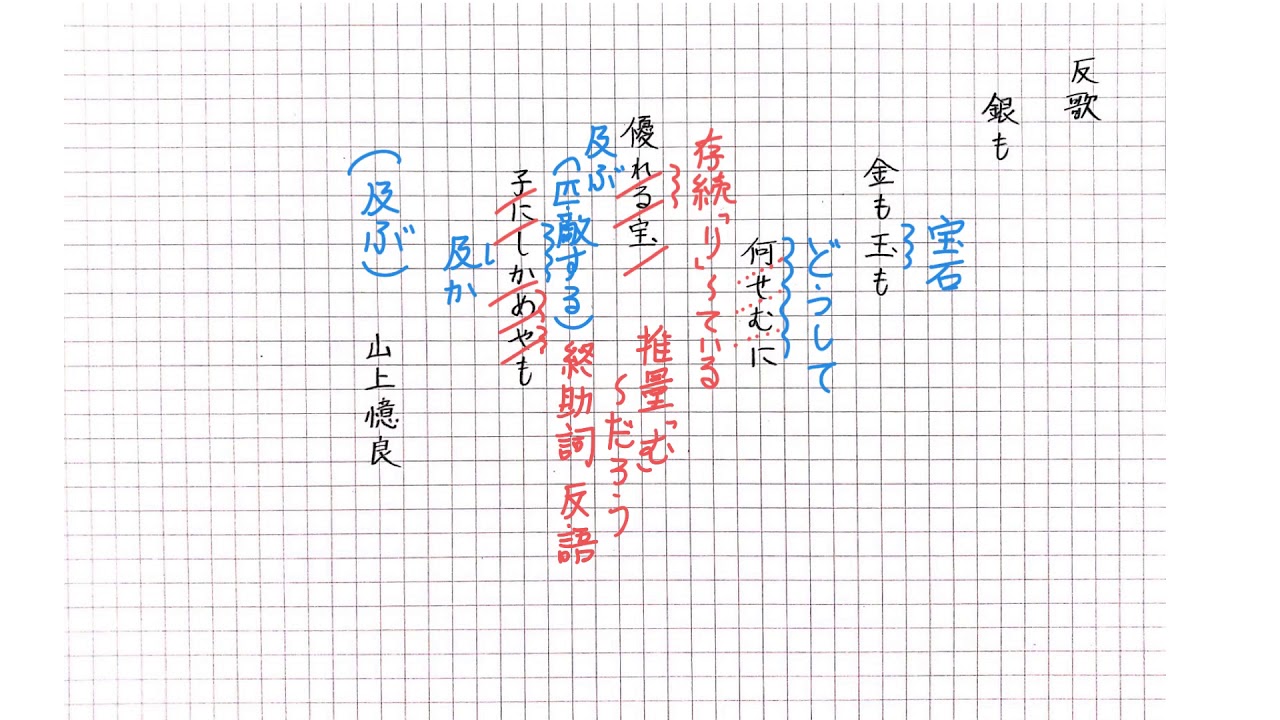 反歌
銀も
宝石
金も玉も
どうして
何せむに
存続「り」〜ている
優れる宝
推量「む」
〜だろう
及ぶ
(匹敵する)
終助詞 反語
子にしかめやも
し
及か
(及ぶ)
山上憶良